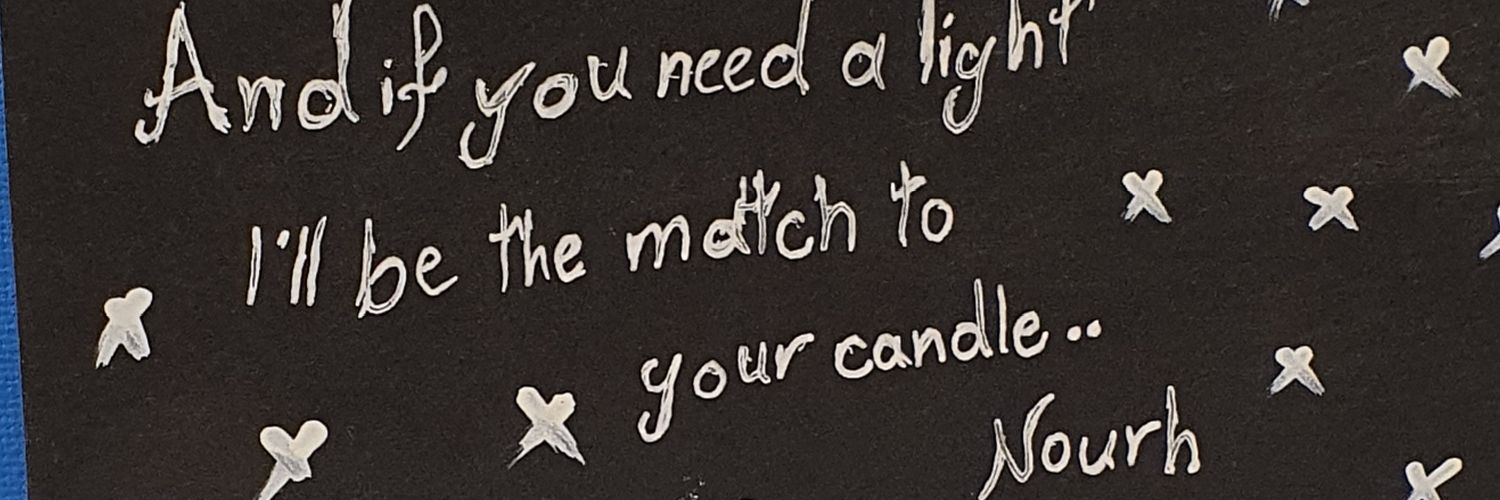 And if you need a light
I'll be the match to
your candle..
Nourh